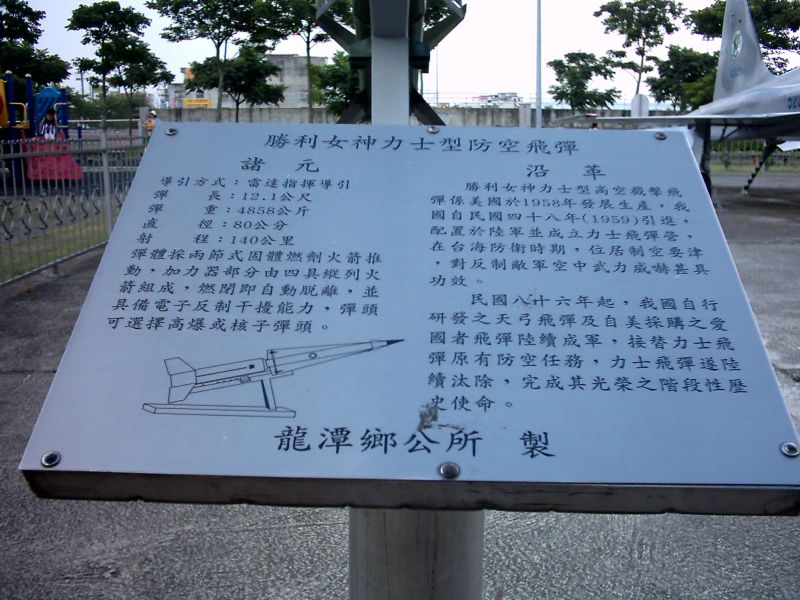 勝利女神力士型防空飛彈
諸元
導引方式：雷達指揮導引
彈　　長：12.1公尺
彈　　重：4858公斤
直　　徑：80公分
射　　程：140公里
彈體採兩節式固體燃劑火箭推
動，加力器部分由四具縱列火
箭組成，燃閉即自動脫離，並
具備電子反制干擾能力，彈頭
可選擇高爆或核子彈頭。
沿革
勝利女神力士型高空飛
彈係美國於1958年發展生產，我
國自民國四十八年(1959)引進，
配置於陸軍並成立力士飛彈營，
在台海防衛時期，位居制空要津
，對反制敵軍空中武力威嚇甚具
功效。
民國八十六年起，我國自行
研發之天弓飛彈及自美採購之愛
國者飛彈陸續成軍，接替力士飛
彈原有防空任務，力士飛彈遂陸
續汰除，完成其光榮之階段性歷
史使命。
龍潭鄉公所 製